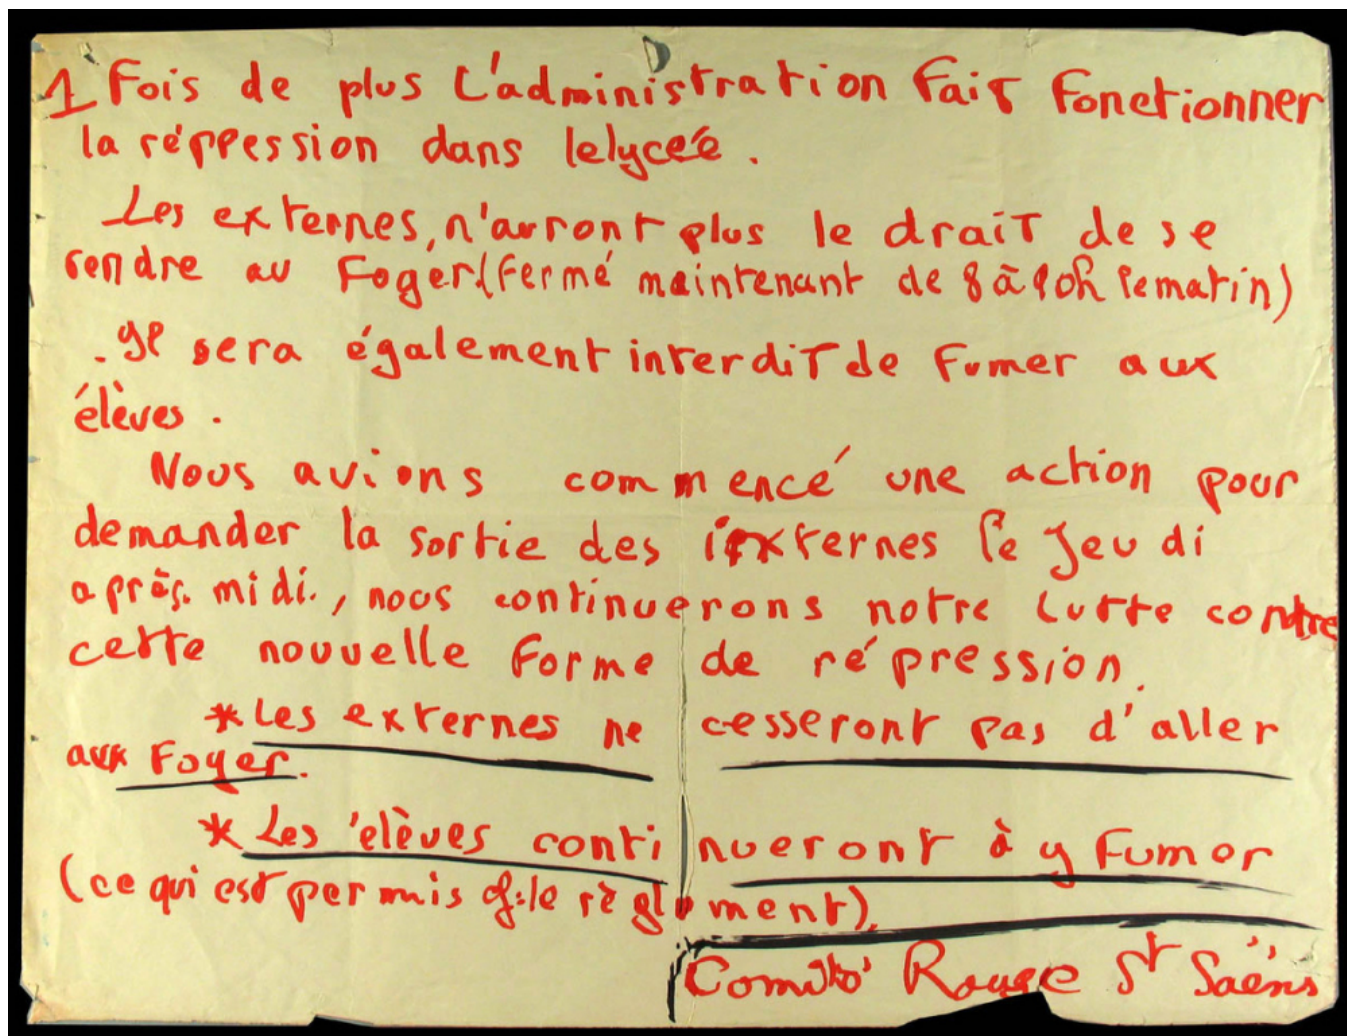 1 Fois de plus L'administration Fait Fonctionner
la réppession dans lelycée.
Les externes, n'auront plus le drait de se
rendre au Foyer (Fermé maintenant de 8 à 10h le matin)
. Il sera également interdit de Fumer aux
élèves.
Nous avions commencé une action pour
demander la sortie des internes le Jeudi
après. midi., nous continuerons notre Lutte contre
cette nouvelle Forme de répression.
* Les externes ne cesseront pas d'aller
aux Foyer.
* Les élèves continueront à y Fumer
(ce qui est permis p. le règlement).
Comité Rouge St Saëns